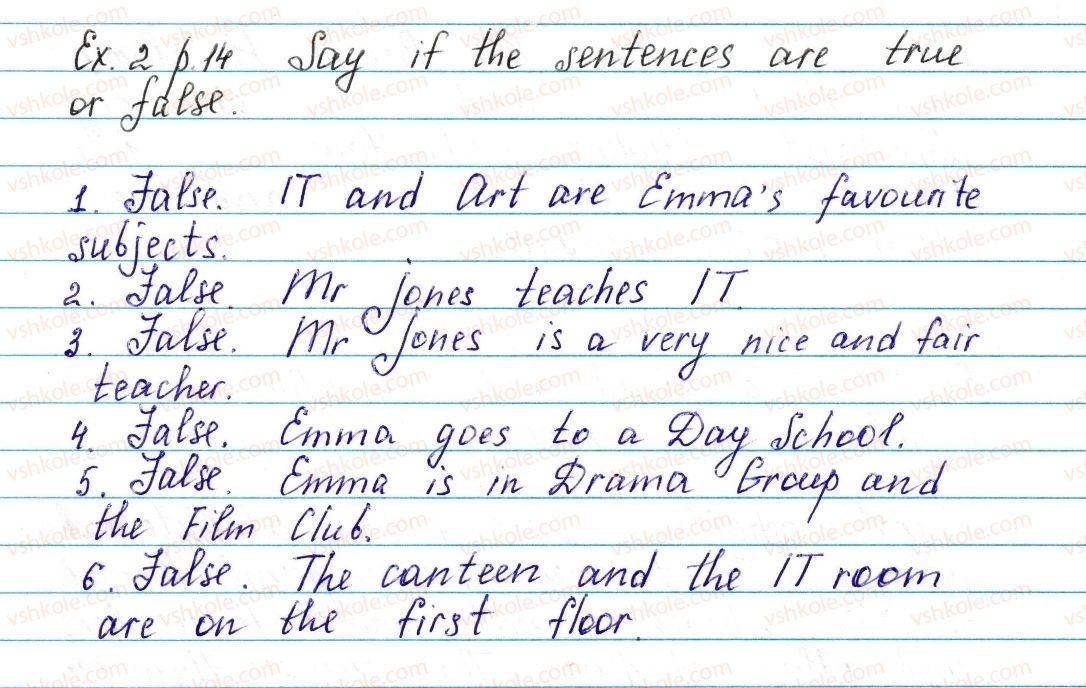 Ex. 2 p. 14 Say if the sentences are true
or false.
1. False. IT and Art are Emma's favourite
subjects.
2. False. Mr Jones teaches IT
3. False. Mr Jones is a very nice and fair
teacher.
4. False. Emma goes to a Day School.
5. False. Emma is in Drama Group and
the Film Club.
6. False. The canteen and the IT room
are on the first floor.